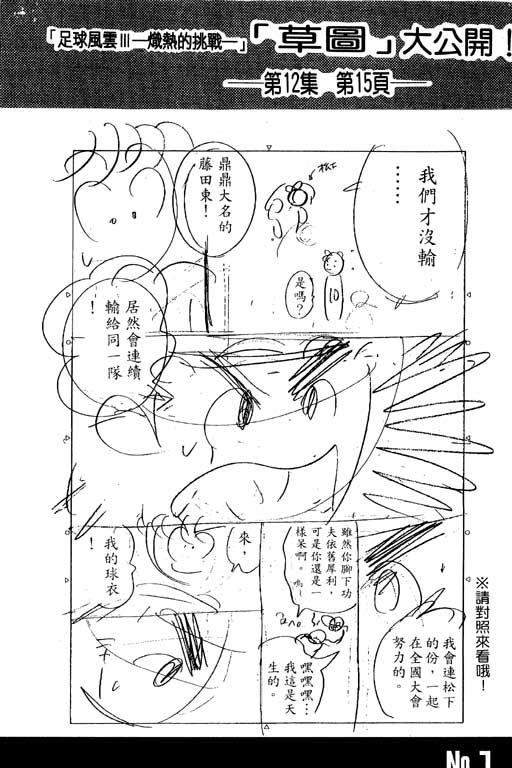 「足球風雲Ⅲ—熾熱的挑戰—」「草圖」大公開！
——第12集 第15頁——
我們才沒輸
……
松下
鼎鼎大名的
藤田東！
是嗎？
10
居然會連續
輸給同一隊
！
雖然你腳下功
夫依舊犀利，
可是你還是一
樣呆啊。嗚
嘿嘿嘿…
我這是天
生的。
來，
我的球衣
！
我會連松下
的份，一起
在全國大會
努力的。
※請對照來看哦！
No.1